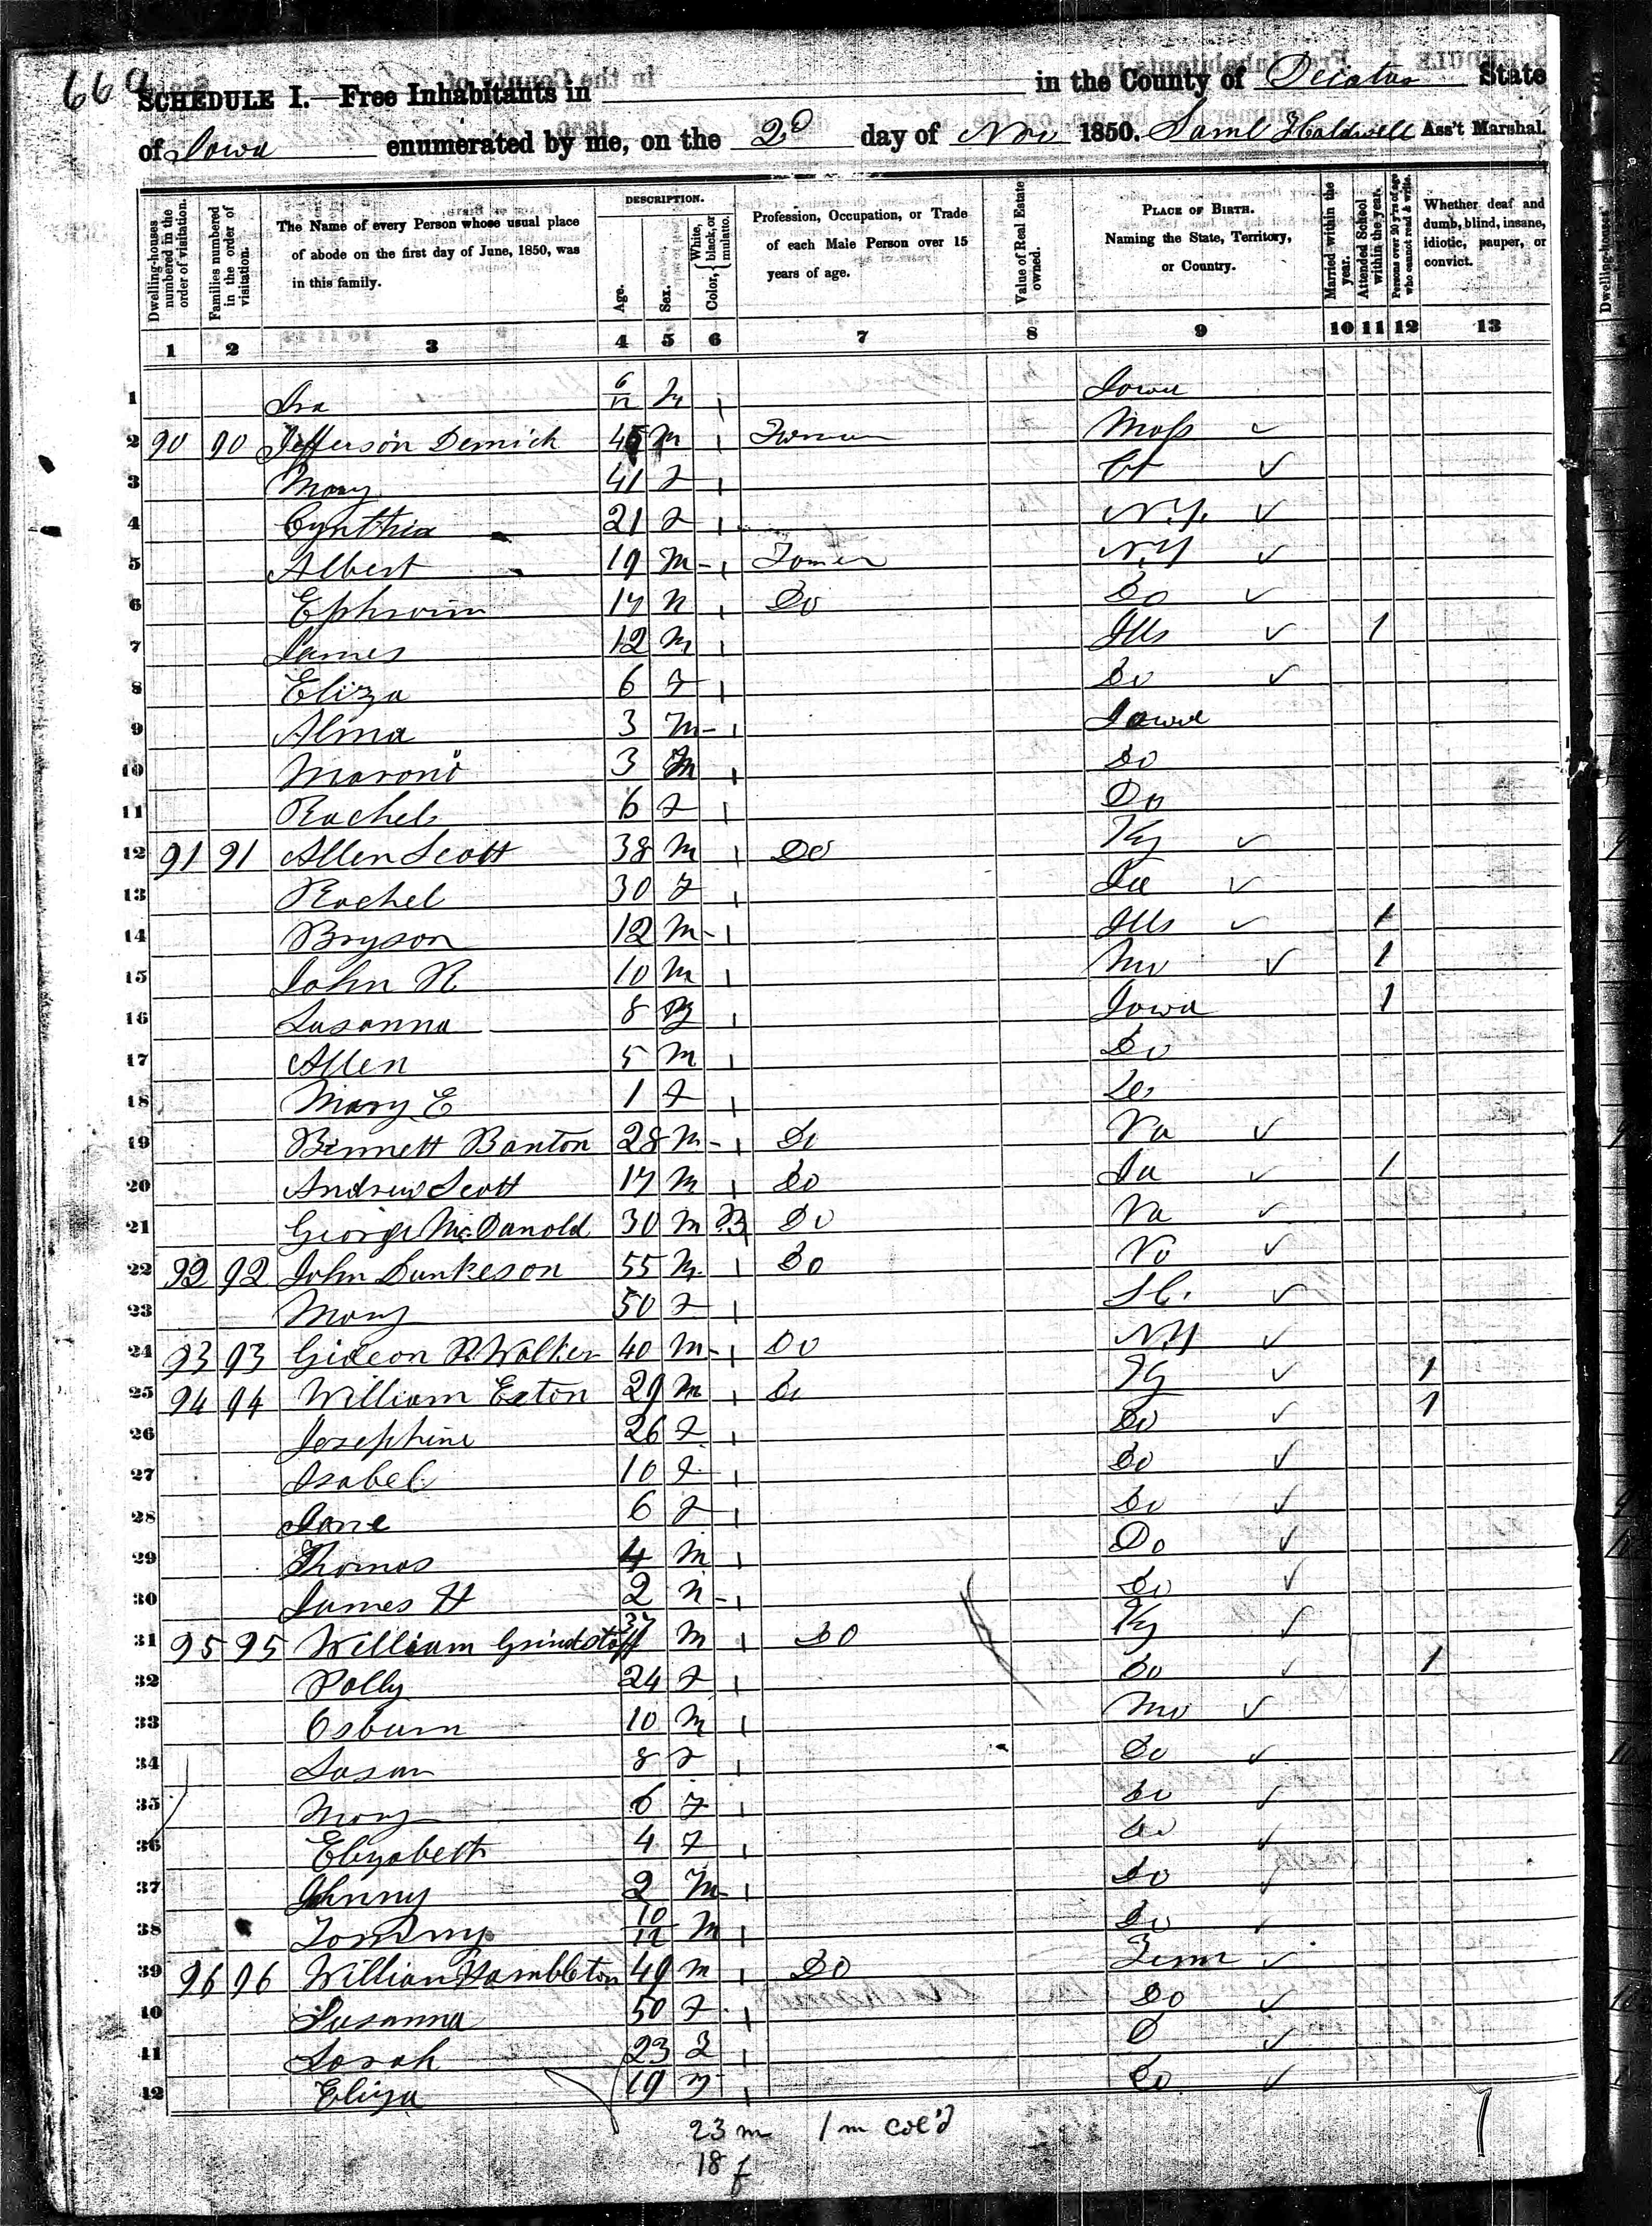 669
SCHEDULE I.—Free Inhabitants in in the County of Decatur State
of Iowa enumerated by me, on the 2d day of Nov 1850. Saml H Caldwell Ass't Marshal.
Dwelling-houses numbered in the order of visitation.
Families numbered in the order of visitation.
The Name of every Person whose usual place of abode on the first day of June, 1850, was in this family.
DESCRIPTION.
Age.
Sex.
Color, { White, black, or mulatto.
Profession, Occupation, or Trade of each Male Person over 15 years of age.
Value of Real Estate owned.
PLACE OF BIRTH. Naming the State, Territory, or Country.
Married within the year.
Attended School within the year.
Persons over 20 y'rs of age who cannot read & write.
Whether deaf and dumb, blind, insane, idiotic, pauper, or convict.
1 2 3 4 5 6 7 8 9 10 11 12 13
1 Ira 6/12 M Iowa
2 90 90 Jefferson Demick 45 M Mass ✓
3 Mary 41 F Ct ✓
4 Cynthia 21 F N.Y. ✓
5 Albert 19 M N.Y ✓
6 Ephraim 17 M Do Do ✓
7 James 12 M Ills ✓ 1
8 Eliza 6 F Do ✓
9 Alma 3 M Iowa
10 Maroni 3 M Do
11 Rachel 6 F Do
12 91 91 Allen Scott 38 M Do Ky ✓
13 Rachel 30 F Ia ✓
14 Bryson 12 M Ills ✓ 1
15 John R 10 M Mo ✓ 1
16 Susanna 8 Iowa 1
17 Allen 5 M Do
18 Mary E 1 F Do
19 Bennett Banton 28 M Do Va ✓
20 Andrew Scott 17 M Do Ia ✓ 1
21 George McDanold 30 M B Do Va ✓
22 92 92 John Dunkeson 55 M Do Va ✓
23 Mary 50 F S C. ✓
24 93 93 Gideon P Walker 40 M Do NY ✓
25 94 94 William Exton 29 M Do Ky ✓ 1
26 Josephine 26 F Do ✓ 1
27 Isabel 10 F Do ✓
28 Jane 6 F Do ✓
29 Thomas 4 M Do ✓
30 James H 2 M Do ✓
31 95 95 William Grindstaff 37 M Do Ky ✓
32 Polly 24 F Do ✓ 1
33 Osburn 10 M Mo ✓
34 Susan 8 F Do ✓
35 Mary 6 F Do ✓
36 Elizabeth 4 F Do ✓
37 Johnny 2 M Do ✓
38 Tommy 10/12 M Do ✓
39 96 96 William Hambleton 49 M Do Tenn ✓
40 Susanna 50 F Do ✓
41 Sarah 23 F D ✓
42 Eliza 19 F Do ✓
23 m 1 m col'd
18 f